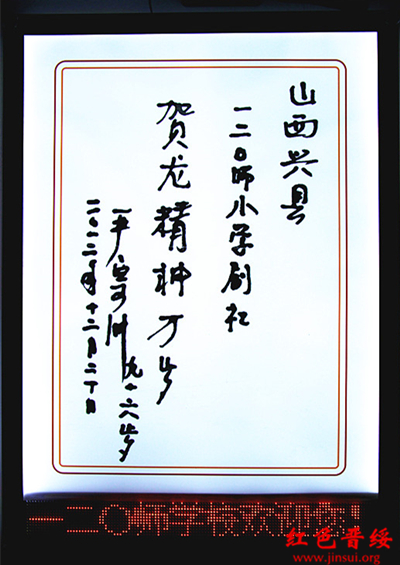 山西兴县
一二〇师小学剧社
贺龙精神万岁
九十六岁
二〇一二年十二月二十日
一二〇师学校欢迎您!
红色晋绥
www.jinsui.org